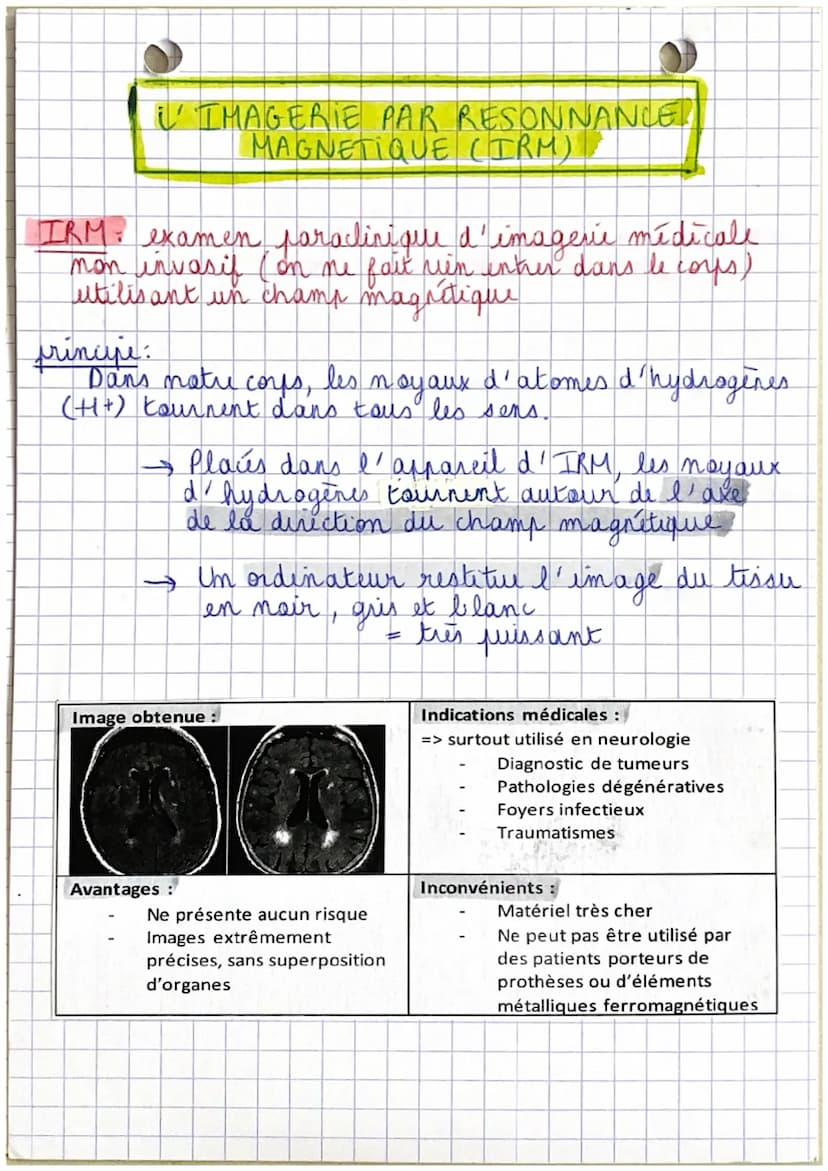 L'IMAGERIE PAR RESONNANCE
MAGNETIQUE (IRM)
IRM: examen paraclinique d'imagerie médicale
non invasif (on ne fait rien entrer dans le corps)
utilisant un champ magnétique
principe:
Dans notre corps, les noyaux d'atomes d'hydrogènes
(H+) tournent dans tous les sens.
→ Placés dans l'appareil d'IRM, les noyaux
d'hydrogènes tournent autour de l'axe
de la direction du champ magnétique
→ Un ordinateur restitue l'image du tissu
en noir, gris et blanc
= très puissant
Image obtenue :
Indications médicales :
=> surtout utilisé en neurologie
- Diagnostic de tumeurs
- Pathologies dégénératives
- Foyers infectieux
- Traumatismes
Avantages :
- Ne présente aucun risque
- Images extrêmement
précises, sans superposition
d'organes
Inconvénients :
- Matériel très cher
- Ne peut pas être utilisé par
des patients porteurs de
prothèses ou d'éléments
métalliques ferromagnétiques